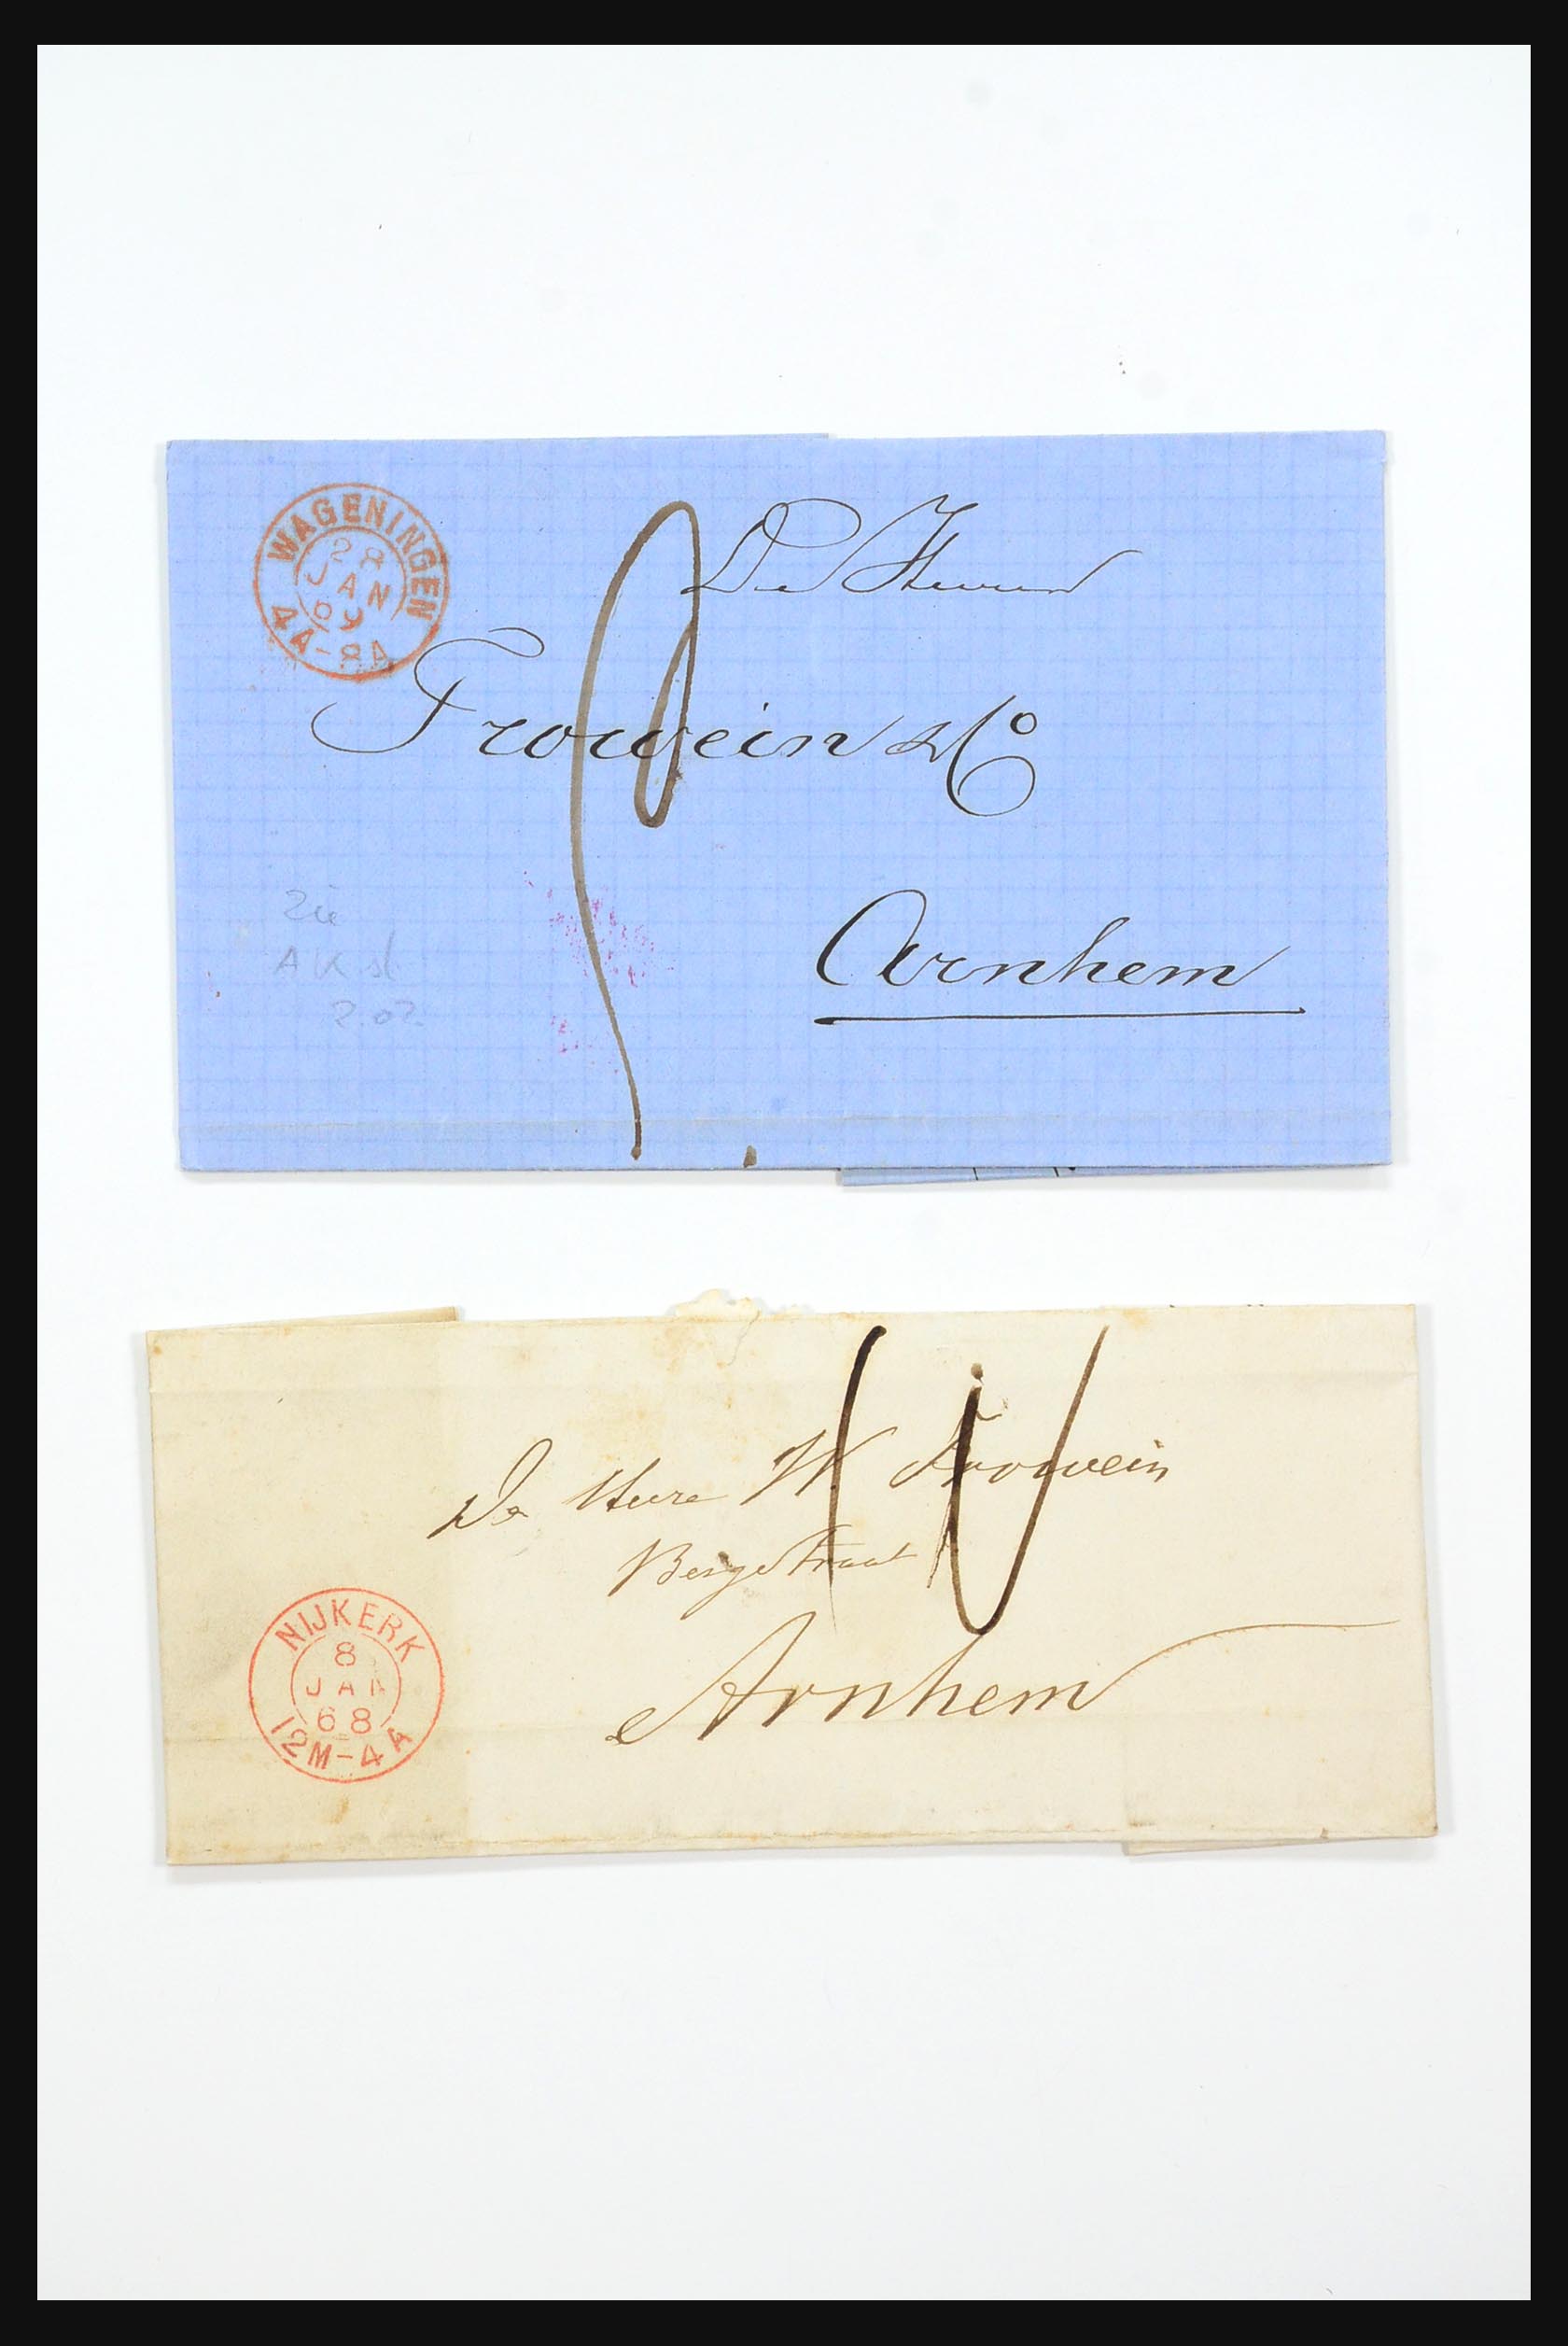 WAGENINGEN
28
JAN
69
4A-8A
De Heeren
Frowein & Co
Arnhem
Zie
De Heere W. Frowein
Bergstraat
Arnhem
NIJKERK
8
JAN
68
12M-4A